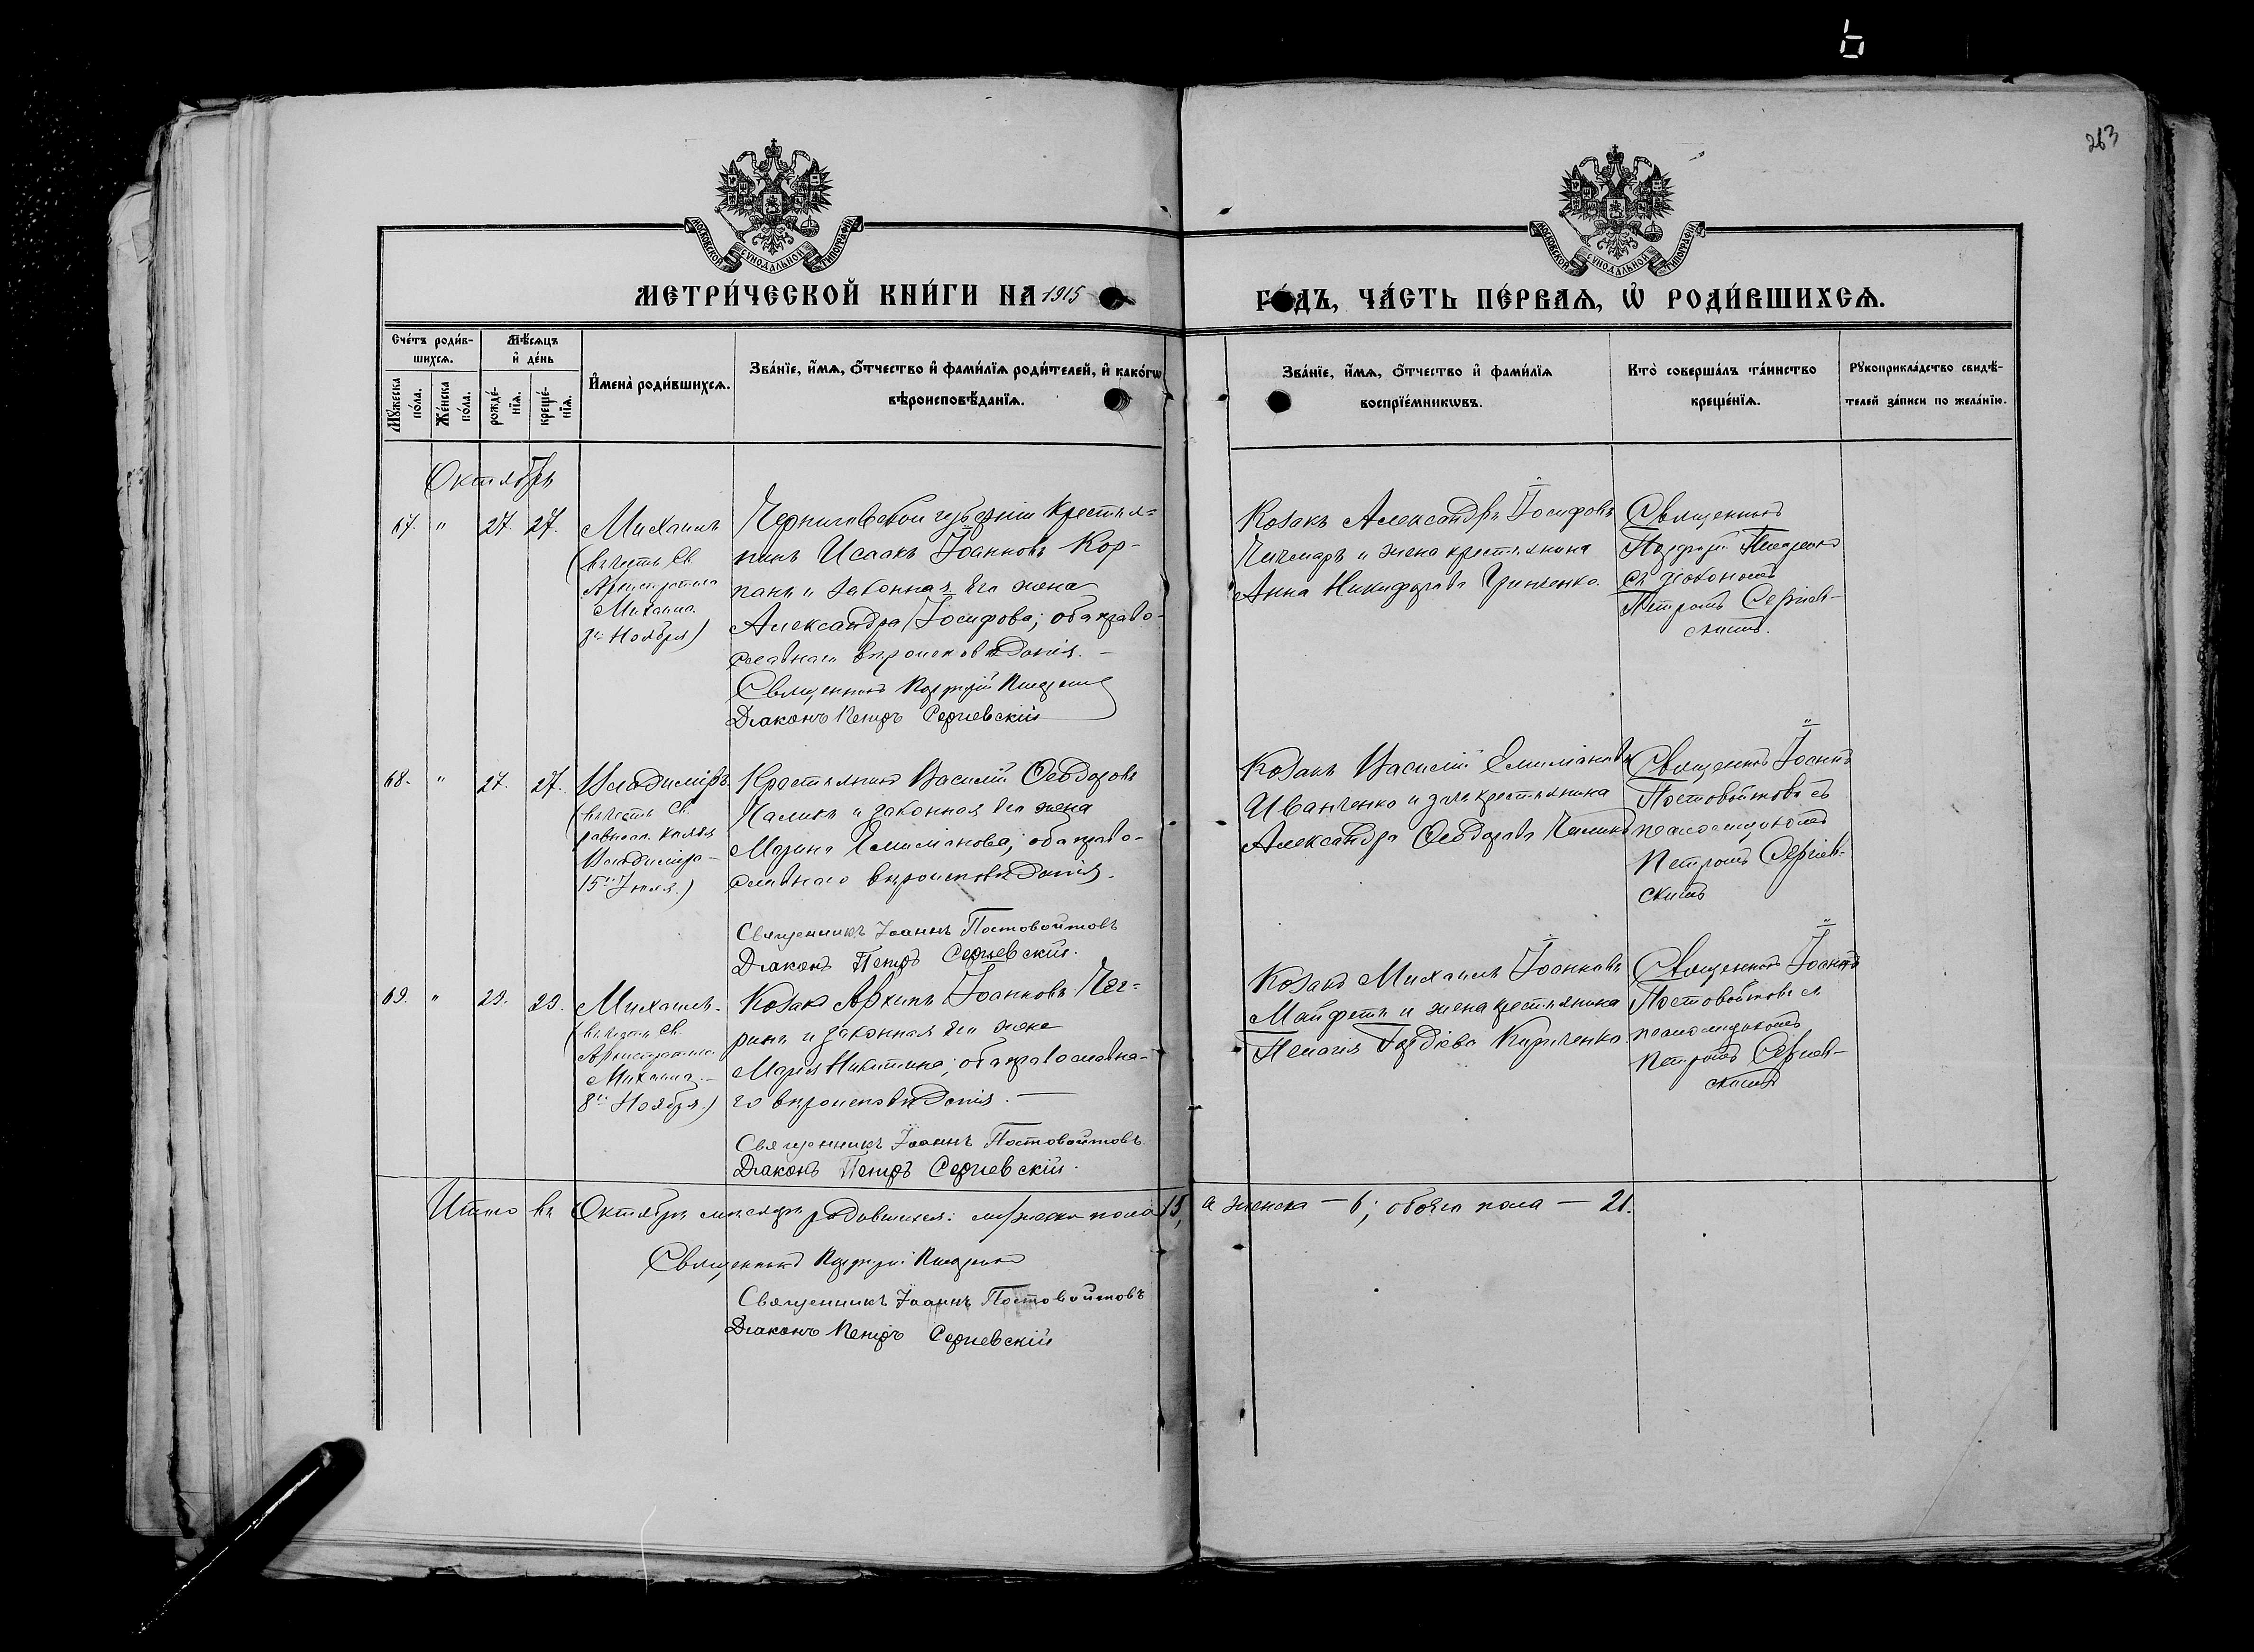 263
МОСКОВСКОЙ СѴНОДАЛЬНОЙ ТИПОГРАФІИ
МОСКОВСКОЙ СѴНОДАЛЬНОЙ ТИПОГРАФІИ
МЕТРИ́ЧЕСКОЙ КНИ́ГИ НА 1915
ГОДЪ, ЧА́СТЬ ПЕ́РВАѦ, Ѡ РОДИ́ВШИХСѦ.
Сче́тъ роди́в-
шихсѧ.
Мꙋ́жеска по́ла.
Же́нска по́ла.
Мѣ́сѧцъ
и҆ де́нь
рожде́-
нїѧ.
креще́-
нїѧ.
И҆мена̀ роди́вшихсѧ.
Зва́нїе, и҆́мѧ, ѻ҆́тчество и҆ фами́лїѧ роди́телей, и҆ како́гѡ
вѣроисповѣ́данїѧ.
Зва́нїе, и҆́мѧ, ѻ҆́тчество и҆ фами́лїѧ
воспрїе́мникѡвъ.
Кто̀ соверша́лъ та́инство
креще́нїѧ.
Рꙋкоприкла́дство свидѣ́-
телей за́писи по жела́нїю.
Октябрь
67. " 27. 27.
Михаилъ
(въ честь Св.
Архистратига
Михаила.
8го Ноября)
Черниговской губерніи крестья=
нинъ Исаакъ Іоанновъ Кор-
панъ и законная его жена
Александра Іосифова; оба право-
славнаго вѣроисповѣданія. –
Священникъ
Діаконъ Петръ Сергіевскій
Козакъ Александръ Іосифовъ
Чичмарь и жена крестьянина
Анна Никифорова Гринченко.
Священникъ
съ діакономъ
Петромъ Сергіев-
скимъ.
68. " 27. 27.
Владиміръ.
(въ честь Св.
равноап. князя
Владиміра –
15го Іюля.)
Крестьянинъ Василій Ѳеодоровъ
и законная его жена
Марина Емиліанова; оба право-
славнаго вѣроисповѣданія.
Священникъ Іоаннъ Постовойтовъ
Діаконъ Петръ Сергіевскій.
Козакъ Василій Емиліановъ
Иванченко и крестьянина
Александра Ѳеодорова
Священникъ Іоаннъ
Постовойтовъ съ
псаломщикомъ
Петромъ Сергіев-
скимъ
69. " 29. 29.
Михаилъ.
(въ честь Св.
Архистратига
Михаила –
8го Ноября.)
Козакъ Архипъ Іоанновъ Чег-
ринъ и законная его жена
Марія Никитина; оба православна-
го вѣроисповѣданія. —
Священникъ Іоаннъ Постовойтовъ
Діаконъ Петръ Сергіевскій.
Козакъ Михаилъ Іоанновъ
Майфетъ и жена крестьянина
Пелагія Гордіева Кириченко.
Священникъ Іоаннъ
Постовойтовъ съ
псаломщикомъ
Петромъ Сергіев-
скимъ
Итого въ Октябрѣ мѣсяцѣ родившихся: мужска пола 15,
а женска — 6; обоего пола — 21.
Священникъ
Священникъ Іоаннъ Постовойтовъ
Діаконъ Петръ Сергіевскій